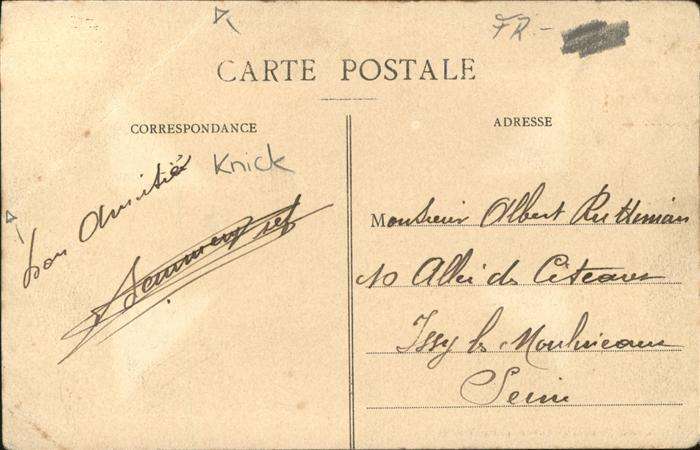 FR.-
CARTE POSTALE
CORRESPONDANCE
Knick
bon Amitié
ADRESSE
Monsieur Albert Ruttiman
10 Allée des Citeaux
Issy les Moulineaux
Seine